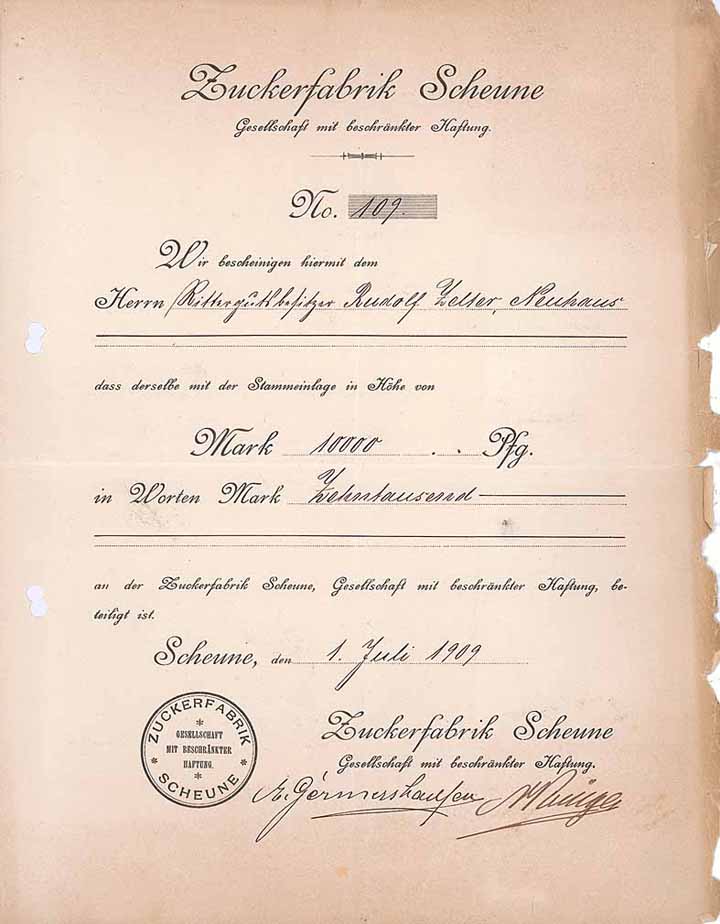 Zuckerfabrik Scheune
Gesellschaft mit beschränkter Haftung.
No. 109.
Wir bescheinigen hiermit dem
Herrn Rittergutsbesitzer Rudolf Zelter, Neuhaus
dass derselbe mit der Stammeinlage in Höhe von
Mark 10000 . . Pfg.
in Worten Mark Zehntausend
an der Zuckerfabrik Scheune, Gesellschaft mit beschränkter Haftung, be-
teiligt ist.
Scheune, den 1. Juli 1909
ZUCKERFABRIK
GESELLSCHAFT
MIT BESCHRÄNKTER
HAFTUNG.
SCHEUNE
Zuckerfabrik Scheune
Gesellschaft mit beschränkter Haftung.
Germershausen